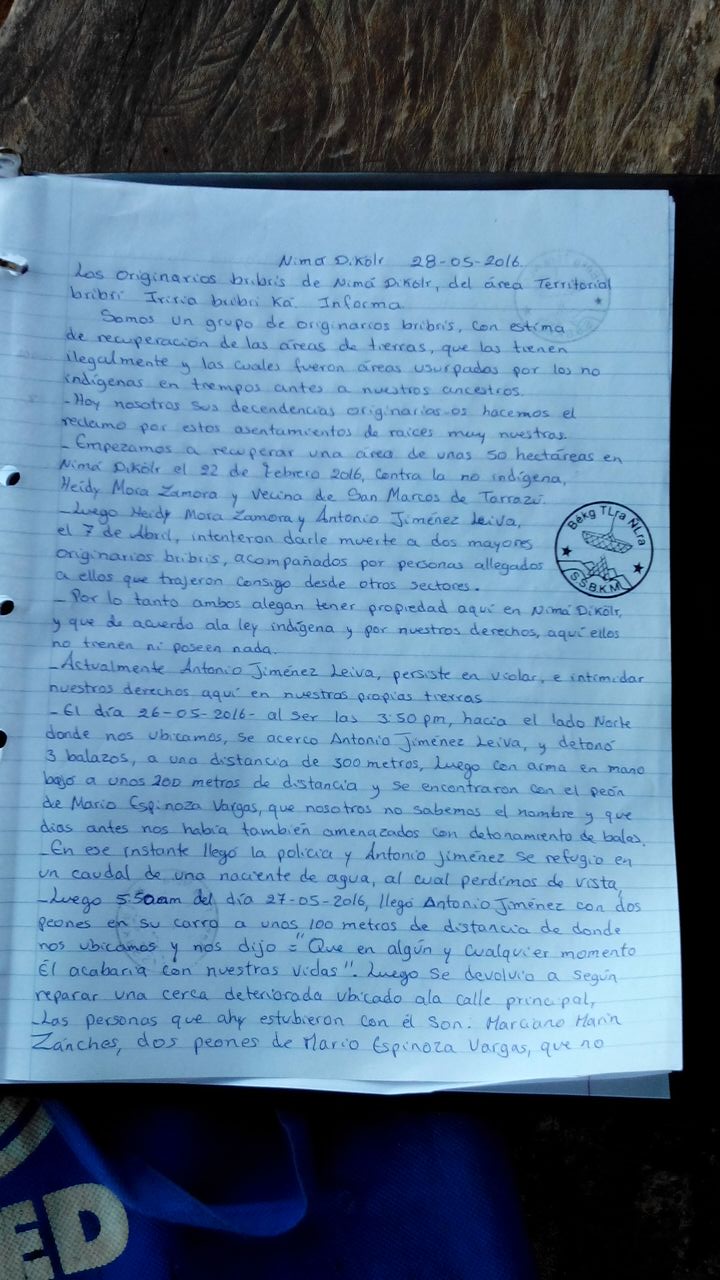 Nimá Dikölr 28-05-2016.
Los originarios bribris de Nimá Dikölr, del área Territorial
bribri Iriria bribri Ká. Informa.
Somos un grupo de originarios bribris, con estima
de recuperación de las áreas de tierras, que las tienen
illegalmente y las cuales fueron áreas usurpados por los no
indígenas en tiempos antes a nuestros ancestros.
- Hoy nosotros sus decendencias originarias os hacemos el
reclamo por estos asentamientos de raices muy nuestras.
- Empezamos a recuperar una área de unas 50 hectáreas en
Nimá Dikölr el 22 de Febrero 2016, contra la no indígena,
Heidy Mora Zamora y Vecina de San Marcos de Tarrazú.
- Luego Heidy Mora Zamora y Antonio Jiménez Leiva,
el 7 de Abril, intenteron darle muerte a dos mayores
originarios bribris, acompañados por personas allegados
a ellos que trajeron consigo desde otros sectores.
- Por lo tanto ambos alegan tener propiedad aquí en Nimá Dikölr,
y que de acuerdo ala ley indígena y por nuestros derechos, aquí ellos
no tienen ni poseen nada.
- Actualmente Antonio Jiménez Leiva, persiste en violar, e intimidar
nuestros derechos aquí en nuestras propias tierras
- El día 26-05-2016- al ser las 3:50 pm, hacia el lado Norte
donde nos ubicamos, se acerco Antonio Jiménez Leiva, y detonó
3 balazos, a una distancia de 300 metros, Luego con arma en mano
bajó a unos 200 metros de distancia y se encontraron con el peón
de Mario Espinoza Vargas, que nosotros no sabemos el nombre y que
dias antes nos había también amenazados con detonamiento de balas.
- En ese instante llegó la policia y Antonio Jiménez se refugio en
un caudal de una naciente de agua, al cual perdimos de vista,
- Luego 5:50am del día 27-05-2016, llegó Antonio Jiménez con dos
peones en su carro a unos 100 metros de distancia de donde
nos ubicamos y nos dijo = "Que en algún y cualquier momento
Él acabaria con nuestras vidas". Luego se devolvio a según
reparar una cerca deteriorada ubicado ala calle principal,
- Las personas que ahy estubieron con él son: Marciano Marin
Zánches, dos peones de Mario Espinoza Vargas, que no
Bëkg TLra ÑLra
SSBKM
ED